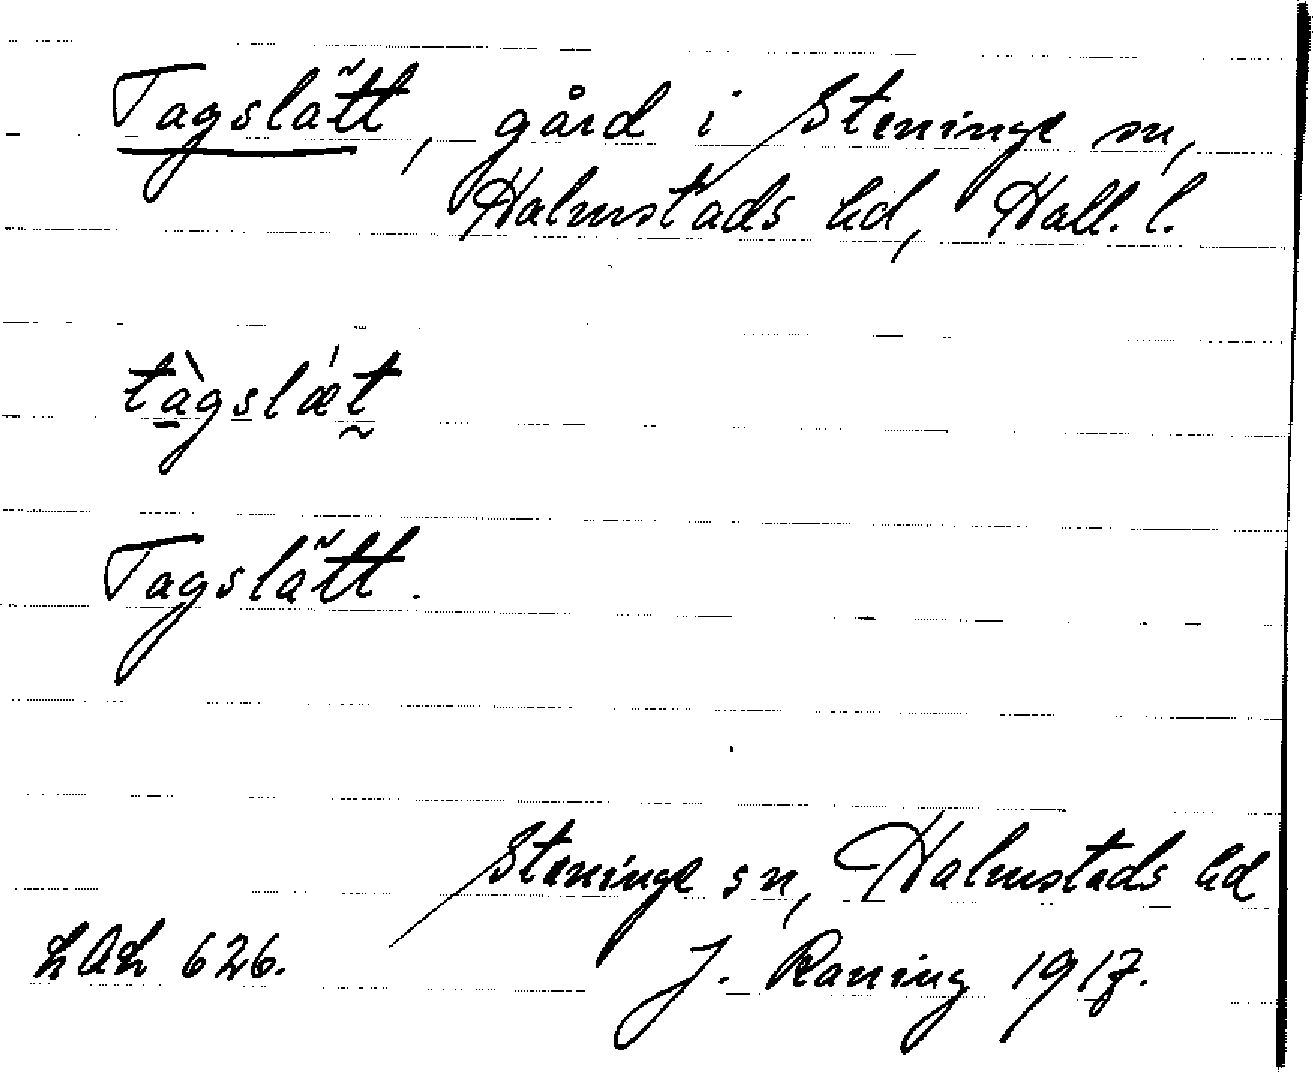 Tagslätt, gård i Steninge sn,
Halmstads hd, Hall. l.
tàgslǽt
Tagslätt.
Steninge sn, Halmstads hd
LAL 626.
J. Raning 1917.